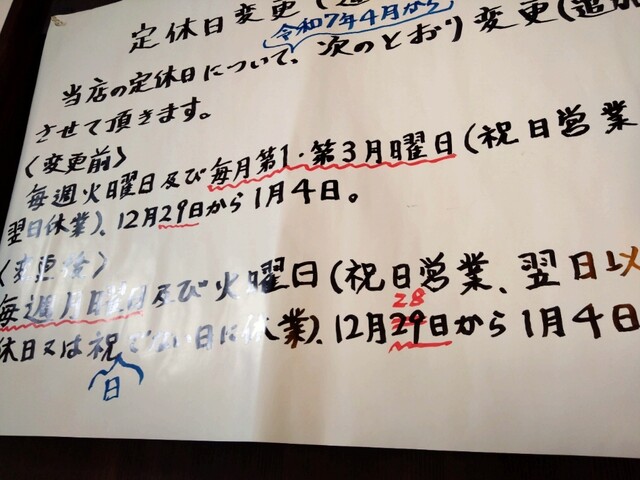 定休日変更(追
令和7年4月から
当店の定休日について、次のとおり変更(追加
させて頂きます。
〈変更前〉
毎週火曜日及び毎月第1・第3月曜日(祝日営業
翌日休業)、12月29日から1月4日。
〈変更後〉
毎週月曜日及び火曜日(祝日営業、翌日以
28
休日又は祝でない日に休業)、12月29日から1月4日
日